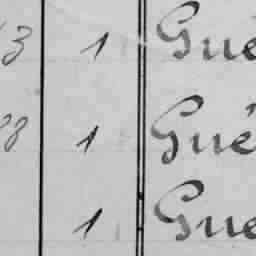 3 1 Gué
8 1 Gué
1 Gue